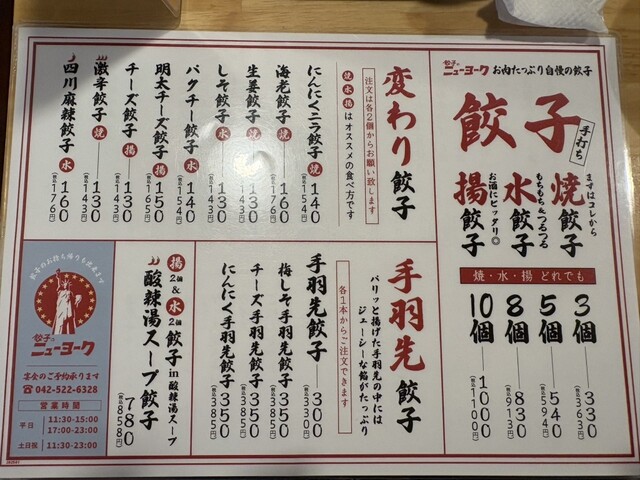 餃子のニューヨーク お肉たっぷり自慢の餃子
餃子
手打ち
まずはコレから
焼餃子
もちもち&つるつる
水餃子
お酒にピッタリ◎
揚餃子
焼・水・揚 どれでも
3個 330
(税込363)
5個 540
(税込594)
8個 830
(税込913)
10個 1000
(税込1100)
変わり餃子
注文は各2個からお願い致します
焼 水 揚 はオススメの食べ方です
にんにくニラ餃子 焼 140
(税込154)
海老餃子 焼 160
(税込176)
生姜餃子 焼 130
(税込143)
しそ餃子 水 130
(税込143)
パクチー餃子 水 140
(税込154)
明太チーズ餃子 揚 150
(税込165)
チーズ餃子 揚 130
(税込143)
激辛餃子 焼 130
(税込143)
四川麻辣餃子 水 160
(税込176)
手羽先餃子
パリッと揚げた手羽先の中には
ジューシーな餡がたっぷり
各1本からご注文できます
手羽先餃子 300
(税込330)
梅しそ手羽先餃子 350
(税込385)
チーズ手羽先餃子 350
(税込385)
にんにく手羽先餃子 350
(税込385)
揚2個&水2個 餃子in酸辣湯スープ
酸辣湯スープ餃子
780
(税込858)
餃子のお持ち帰りも出来ます
餃子のニューヨーク
宴会のご予約承ります
☎042-522-6328
営業時間
平日 11:30-15:00
17:00-23:00
土日祝 11:30-23:00